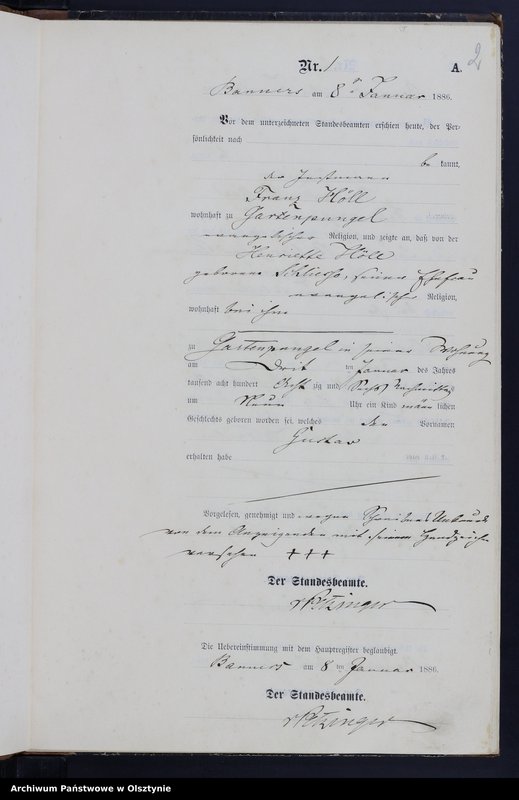 2
Nr. 1
A.
Banners am 8ten Januar 1886.
Vor dem unterzeichneten Standesbeamten erschien heute, der Per-
sönlichkeit nach
be kannt,
der Instmann
Franz Höll
wohnhaft zu Gartenpungel
evangelischer Religion, und zeigte an, daß von der
Henriette Höll
geborene seiner Ehefrau
evangelischer Religion,
wohnhaft bei ihm
zu Gartenpungel in seiner Wohnung
am Drit ten Januar des Jahres
tausend acht hundert Acht zig und Sechs Nachmittag
um Neun Uhr ein Kind männ lichen
Geschlechts geboren worden sei, welches den Vornamen
Gustav
erhalten habe
Vorgelesen, genehmigt und wegen Schreibens Unkunde
von dem Anzeigenden mit seinem Handzeichen
versehen +++
Der Standesbeamte.
Die Uebereinstimmung mit dem Hauptregister beglaubigt.
Banners am 8 ten Januar 1886.
Der Standesbeamte.
Archiwum Państwowe w Olsztynie